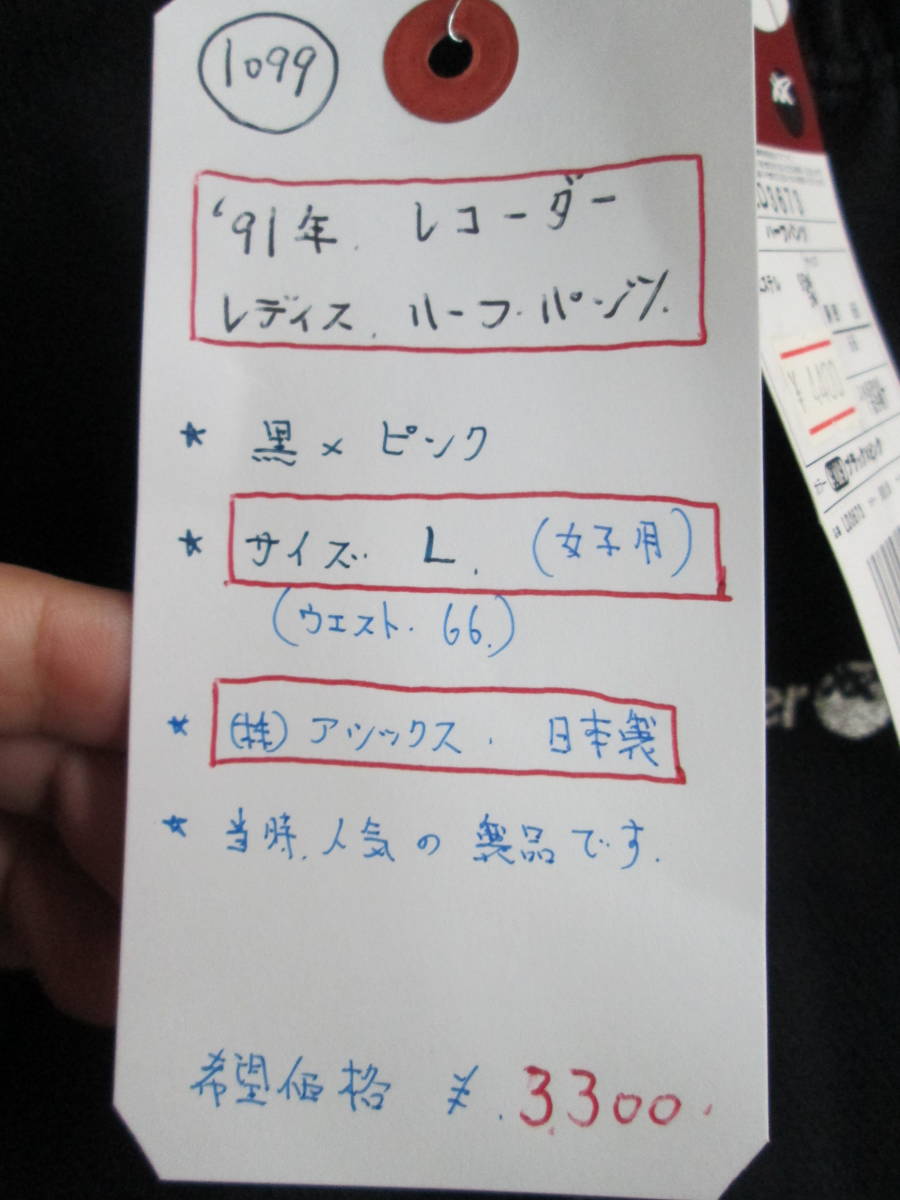 1099
'91年. レコーダー
レディス. ハーフ・パンツ.
* 黒 × ピンク
* サイズ. L. (女子用)
(ウエスト. 66.)
* (株) アシックス. 日本製
* 当時.人気の 製品です.
希望価格 ¥.3.300.
LD3673
ハーフパンツ
¥4400
ブラックxピンク
er